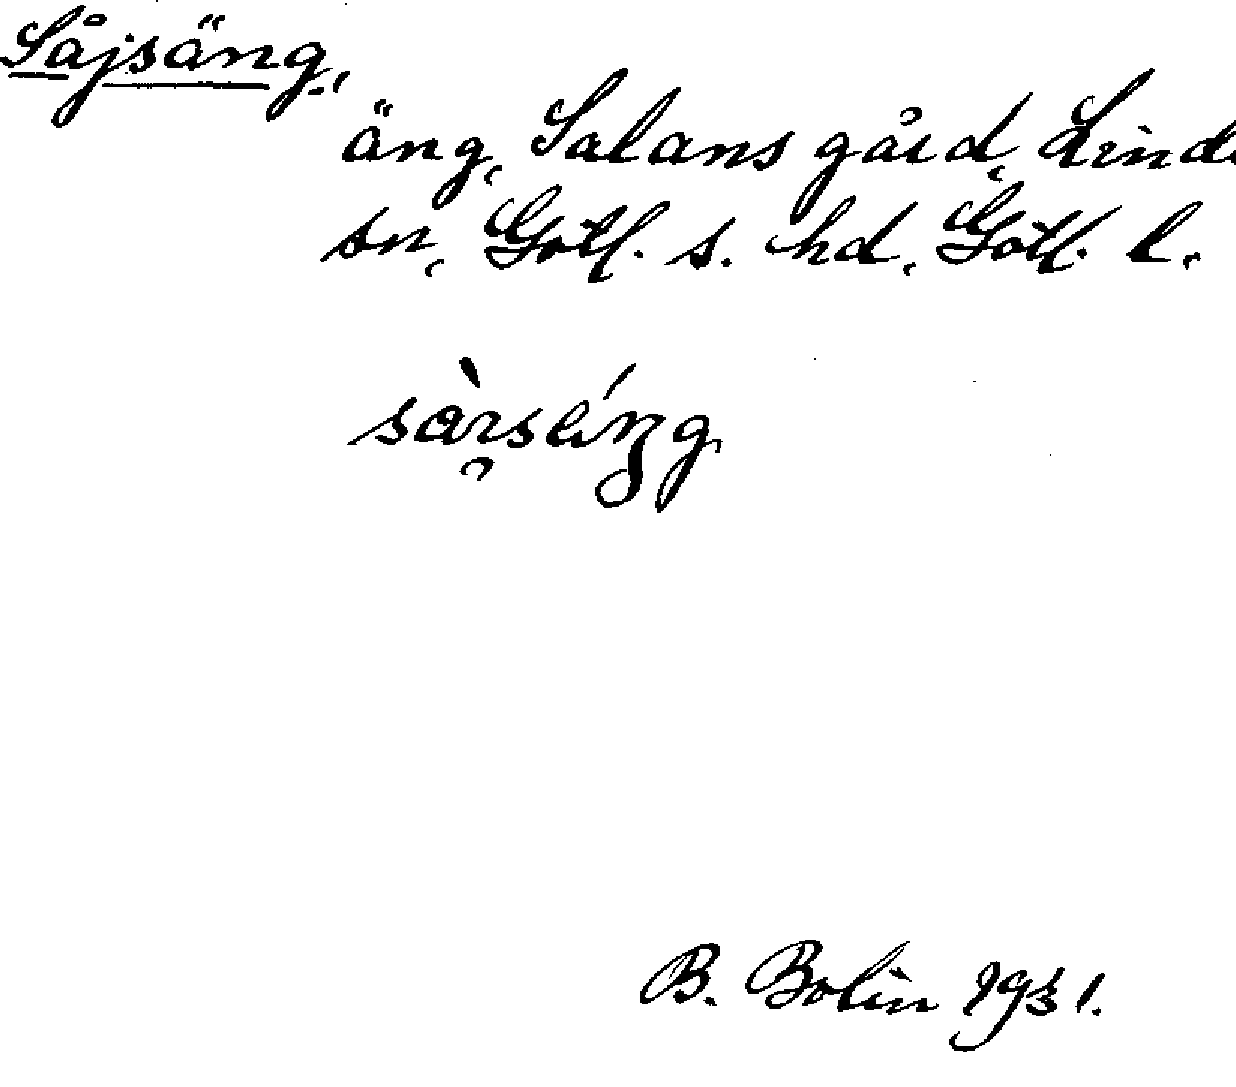 Såjsäng,
äng, Salans gård, Linde
sn, Gotl. s. hd, Gotl. l.
B. Bolin 1931.